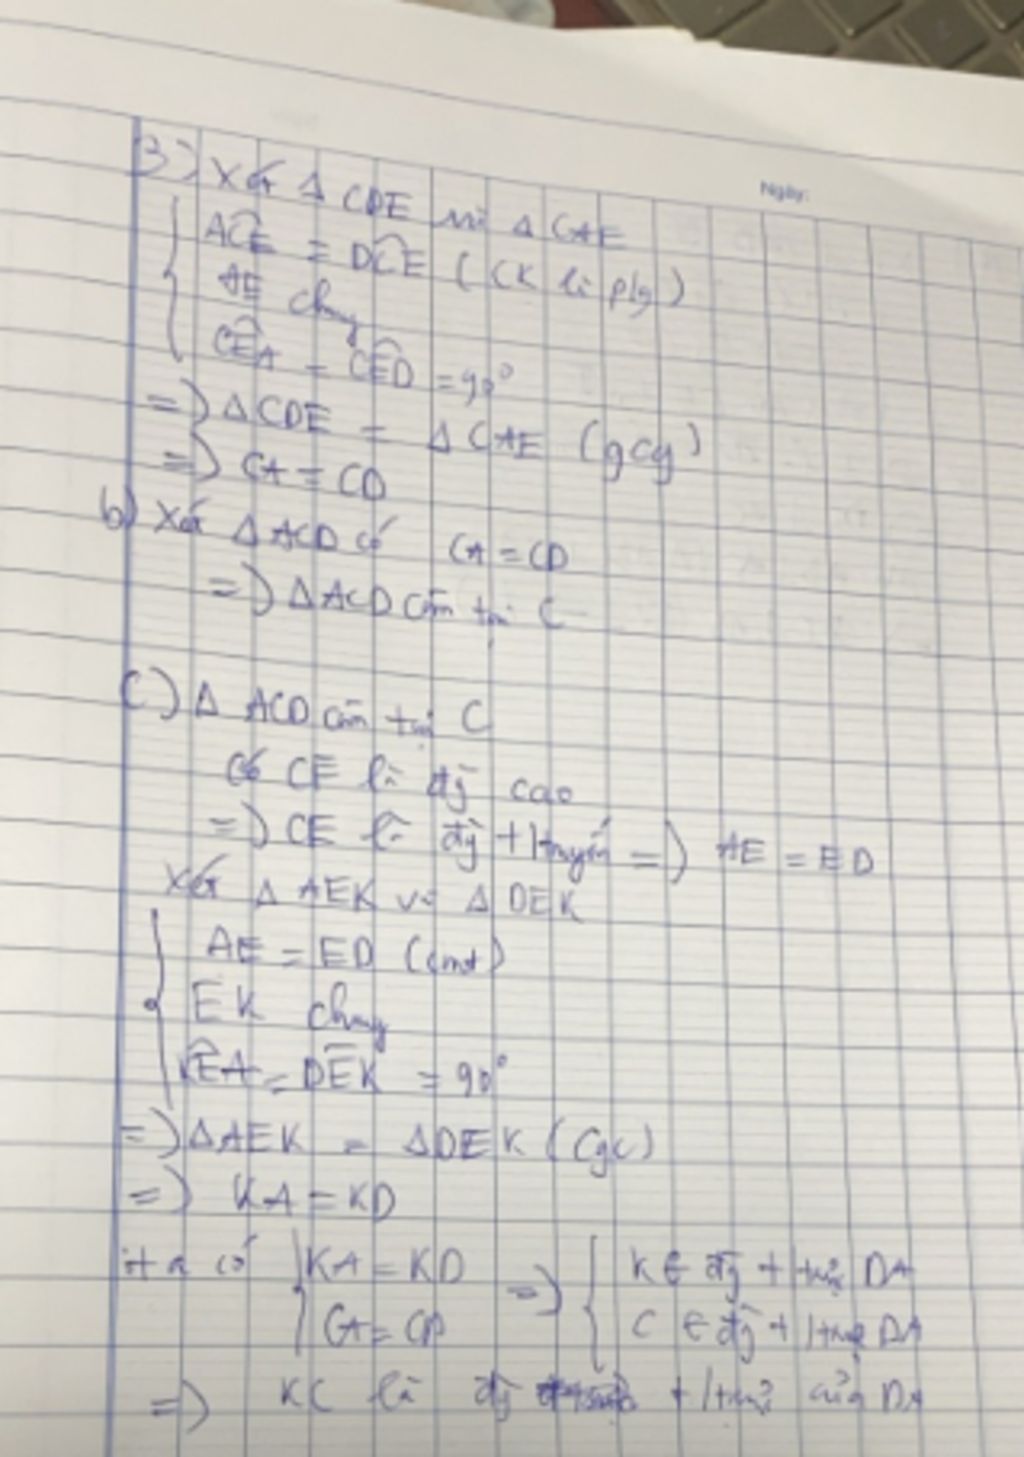 Ngày:
3) Xét Δ CDE và Δ CAE
ACE = DCE (CK là p/g)
AE chung
CEA = CED = 90°
=) Δ CDE = Δ CAE (gcg)
=) CA = CD
b) Xét Δ ACD có CA = CD
=) Δ ACD cân tại C
C) Δ ACD cân tại C
Có CE là đg cao
=) CE là đg + tuyến =) AE = ED
Xét Δ AEK và Δ DEK
AE = ED (cmt)
EK chung
KEA = DEK = 90°
=) Δ AEK = Δ DEK (Cgc)
=) KA = KD
ta có KA = KD =) K ∈ đg DA
CA = CD C ∈ đg DA
=) KC là đg của DA